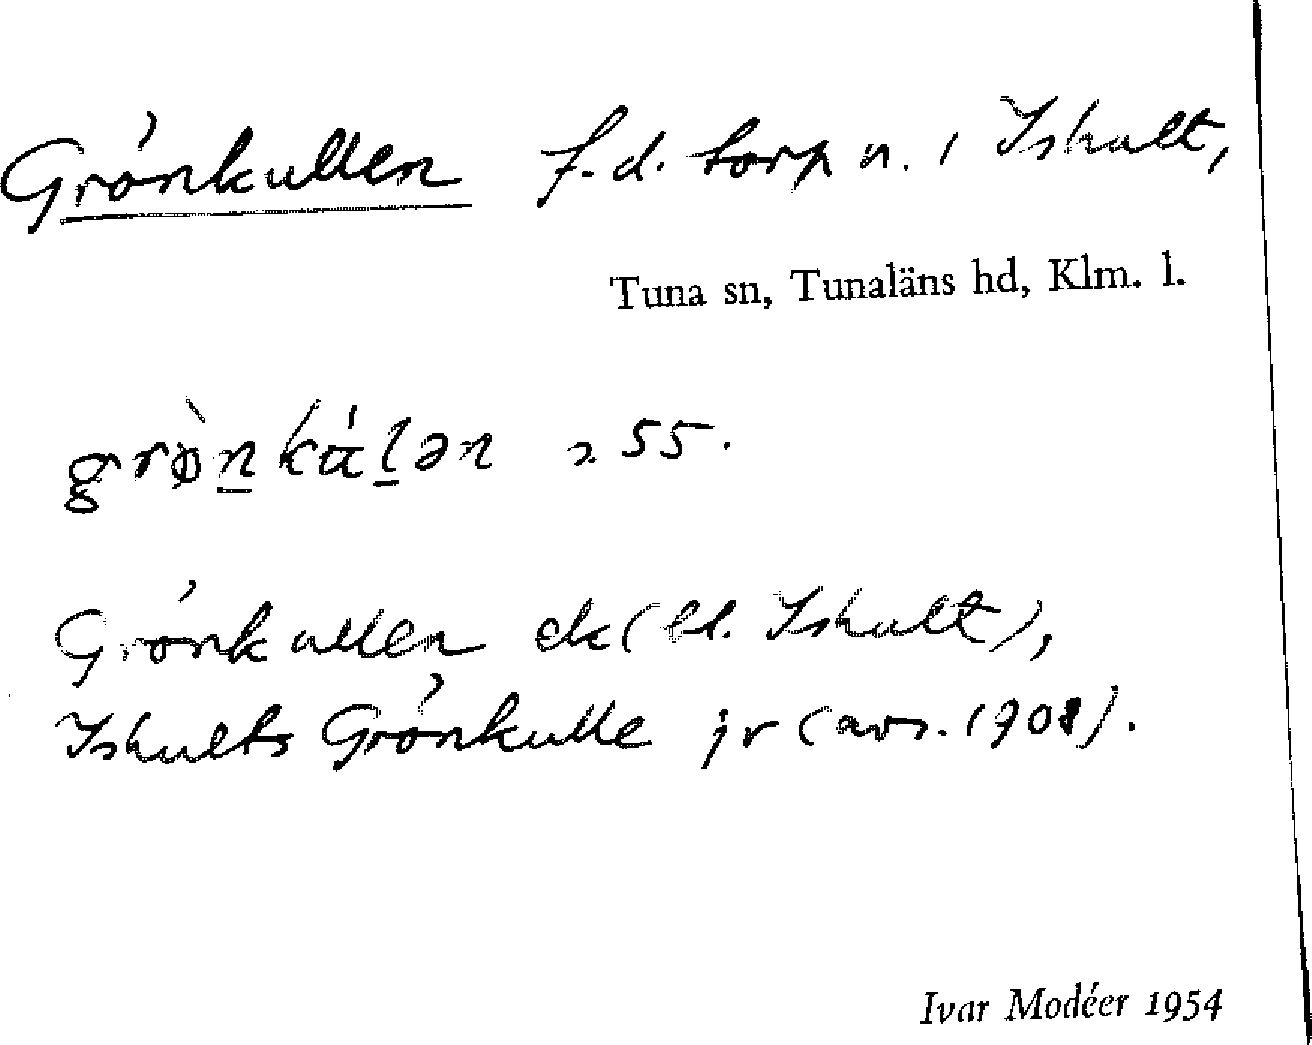 Grönkullen f.d. torp n. i Ishult,
Tuna sn, Tunaläns hd, Klm. l.
grø̀n̲kɑ́l̲ən 255.
Grönkullen ek (bl. Ishult),
Ishults Grönkulle jr (avs. 1908).
Ivar Modéer 1954